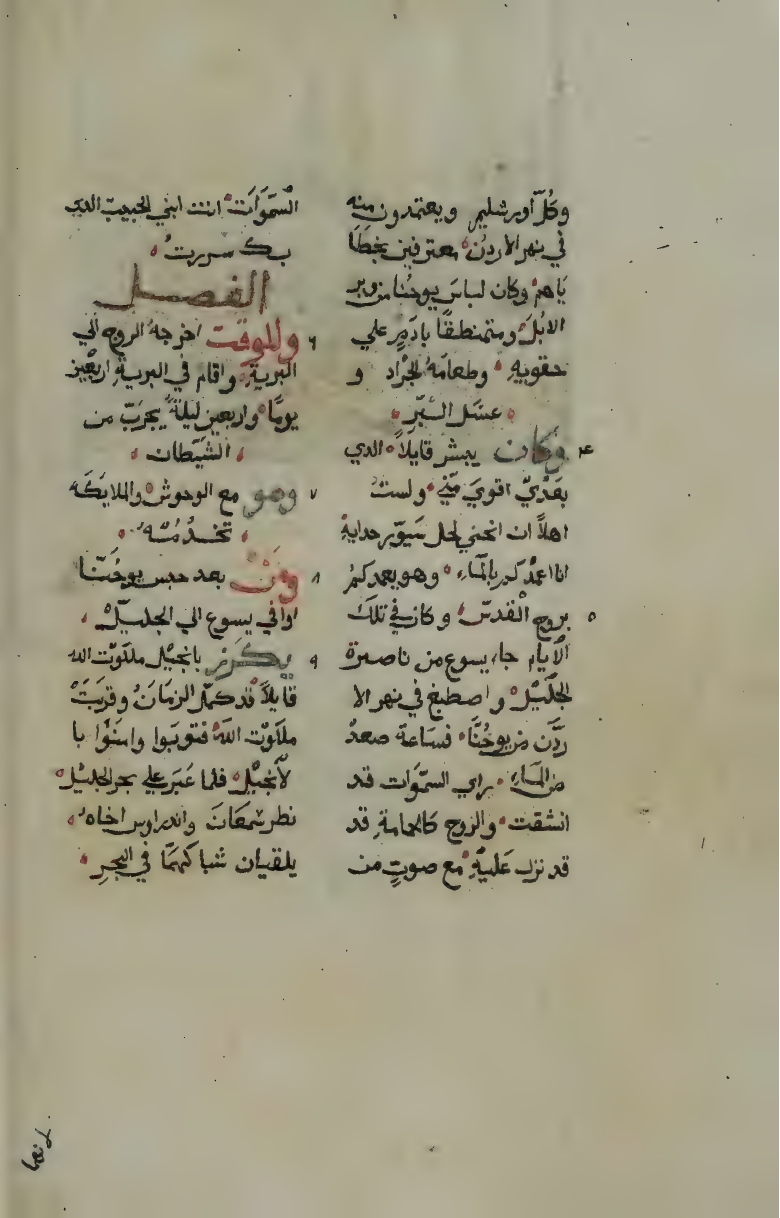 وكُلّ اورشليم ويعتمدون منه
في نهر الاردن معترفين بخطا
ياهم وكان لباسَ يوحنا من وبر
الابل ومتمنطقًا بادمٍ علي
حقويهِ وطعامهُ الجراد و
عسَل البَرّ
٤ وكان يبشر قايلاً الدي
بعدي اقوي مني ولستُ
اهلاً ان انحني لحل سيور حدايهِ
انا اعمدكم بالماء وهو يعمدكم
٥ بروح القدس وكان في تلك
الايام جاء يسوع من ناصرة
الجليل واصطبغ في نهر الا
ردن من يوحنا فسَاعة صعد
من الماء راي السموات قد
انشقت والروح كالحمامةِ قد
قد نزل عَليهِ مع صوتٍ من
السموَات انت ابني الحبيب الدي
بك سررتُ
الفصل
٦ وللوقت اخرجهُ الروح الي
البرية واقام في البرية اربعين
يومًا واربعين ليلة يجرَبّ من
الشيطان
٧ وهو مع الوحوش والملايكَه
تخدمُهُ
٨ ومن بعد حبس يوحنا
اوافي يسوع الي الجليل
٩ يكرز بانجيل ملكوت الله
قايلاً قد كمل الزمان وقربَتْ
ملكوت الله فتوبَوا وامنوا با
لانجيل فلما عَبَر علي بحر الجليل
نظر شمعَانَ واندراوس اخاه
يلقيان شباكهمَا في البحرِ